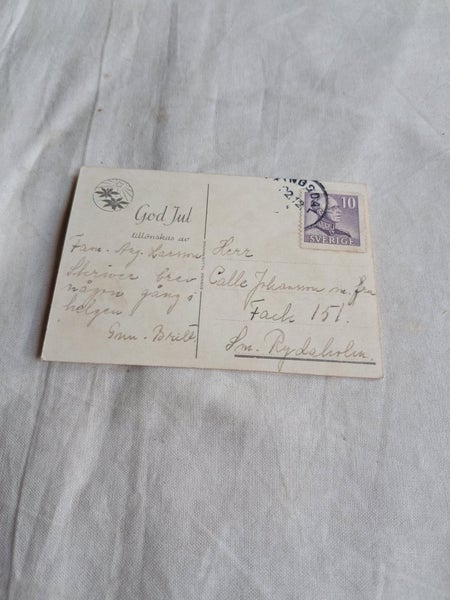 God Jul
tillönskas av
Fam. Arg. Larsson
Skriver brev
någon gång i
helgen
Gun-Britt
Herr
Calle Johansson m. fru
Fack 151.
Sm. Rydaholm.
10
SVERIGE